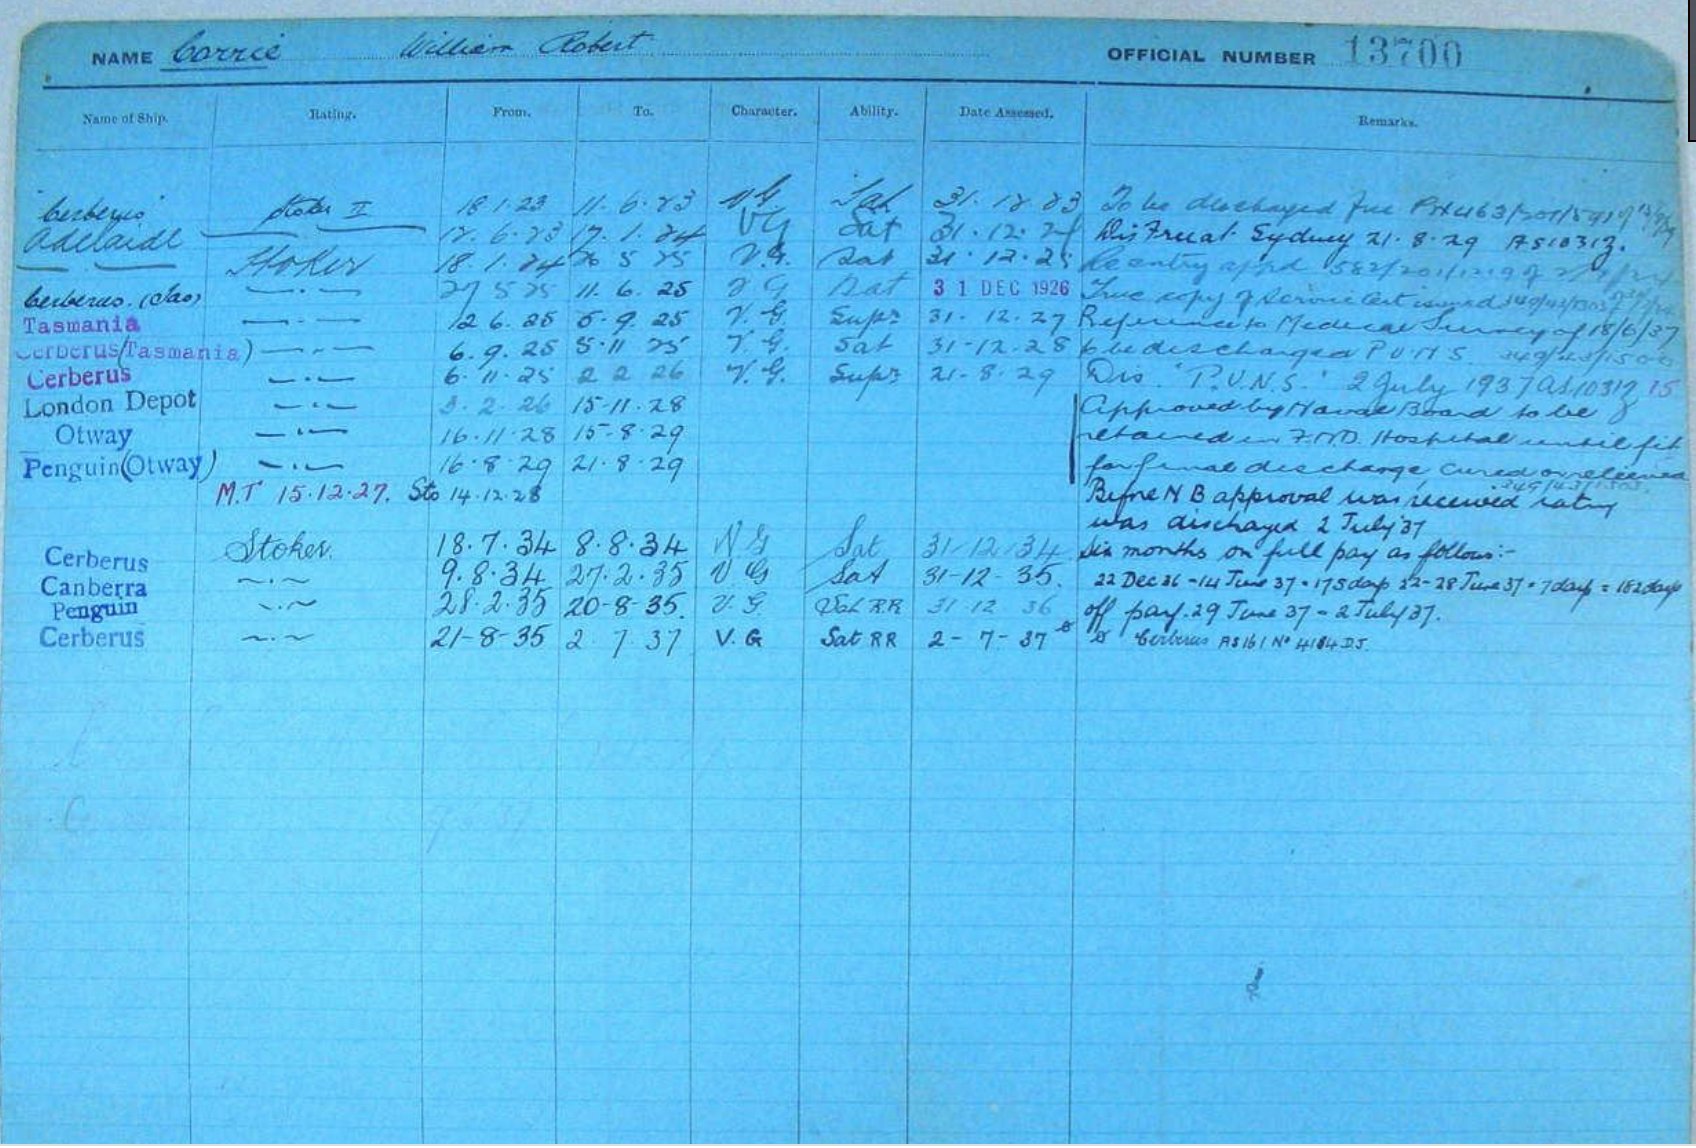 NAME Corrie William Robert OFFICIAL NUMBER 13700
Name of Ship. Rating. From. To. Character. Ability. Date Assessed. Remarks.
Cerberus Stoker II 18.1.23 11.6.23 V.G. Sat 31.12.23 To be discharged
Adelaide —.— 12.6.23 17.1.24 VG Sat 31.12.24 Dis Sydney 21.8.29 AS 10312.
Stoker 18.1.24 26 5 25 V.G. Sat 31.12.25 Re entry appd
Cerberus. —.— 27 5 25 11.6.25 V G Sat 31 DEC 1926 True copy of Service Cert issued
Tasmania —.— 12 6.25 5.9.25 V.G. Supr 31.12.27 Reference to Medical Survey of 18/6/37
Cerberus (Tasmania) —.— 6.9.25 5.11 25 V.G. Sat 31-12.28 to be discharged P U N S.
Cerberus —.— 6.11.25 2 2 26 V.G. Supr 21-8.29 Dis. "P.U.N.S." 2 July 1937 AS 10317
London Depot —.— 3.2.26 15-11.28 Approved by Naval Board to be
Otway —.— 16.11.28 15-8.29 retained in F.N.D. Hospital until fit
Penguin (Otway) —.— 16.8.29 21.8.29 for final discharge cured or relieved
M.T 15.12.27. Sto 14.12.28 Before N B approval was received rating
was discharged 2 July '37
Cerberus Stoker. 18.7.34 8.8.34 V G Sat 31/12/34 Six months on full pay as follows:-
Canberra —.— 9.8.34 27.2.35 V G Sat 31-12-35. 22 Dec 36 - 14 June 37 = 175 days 22-28 June 37 = 7 days = 182 days
Penguin —.— 28.2.35 20-8-35. V.G. Sat RR 31 12 36 off pay. 29 June 37 - 2 July 37.
Cerberus —.— 21-8-35 2 7 37 V.G Sat RR 2-7-37 Cerberus AS 161 No 4184 DJ.